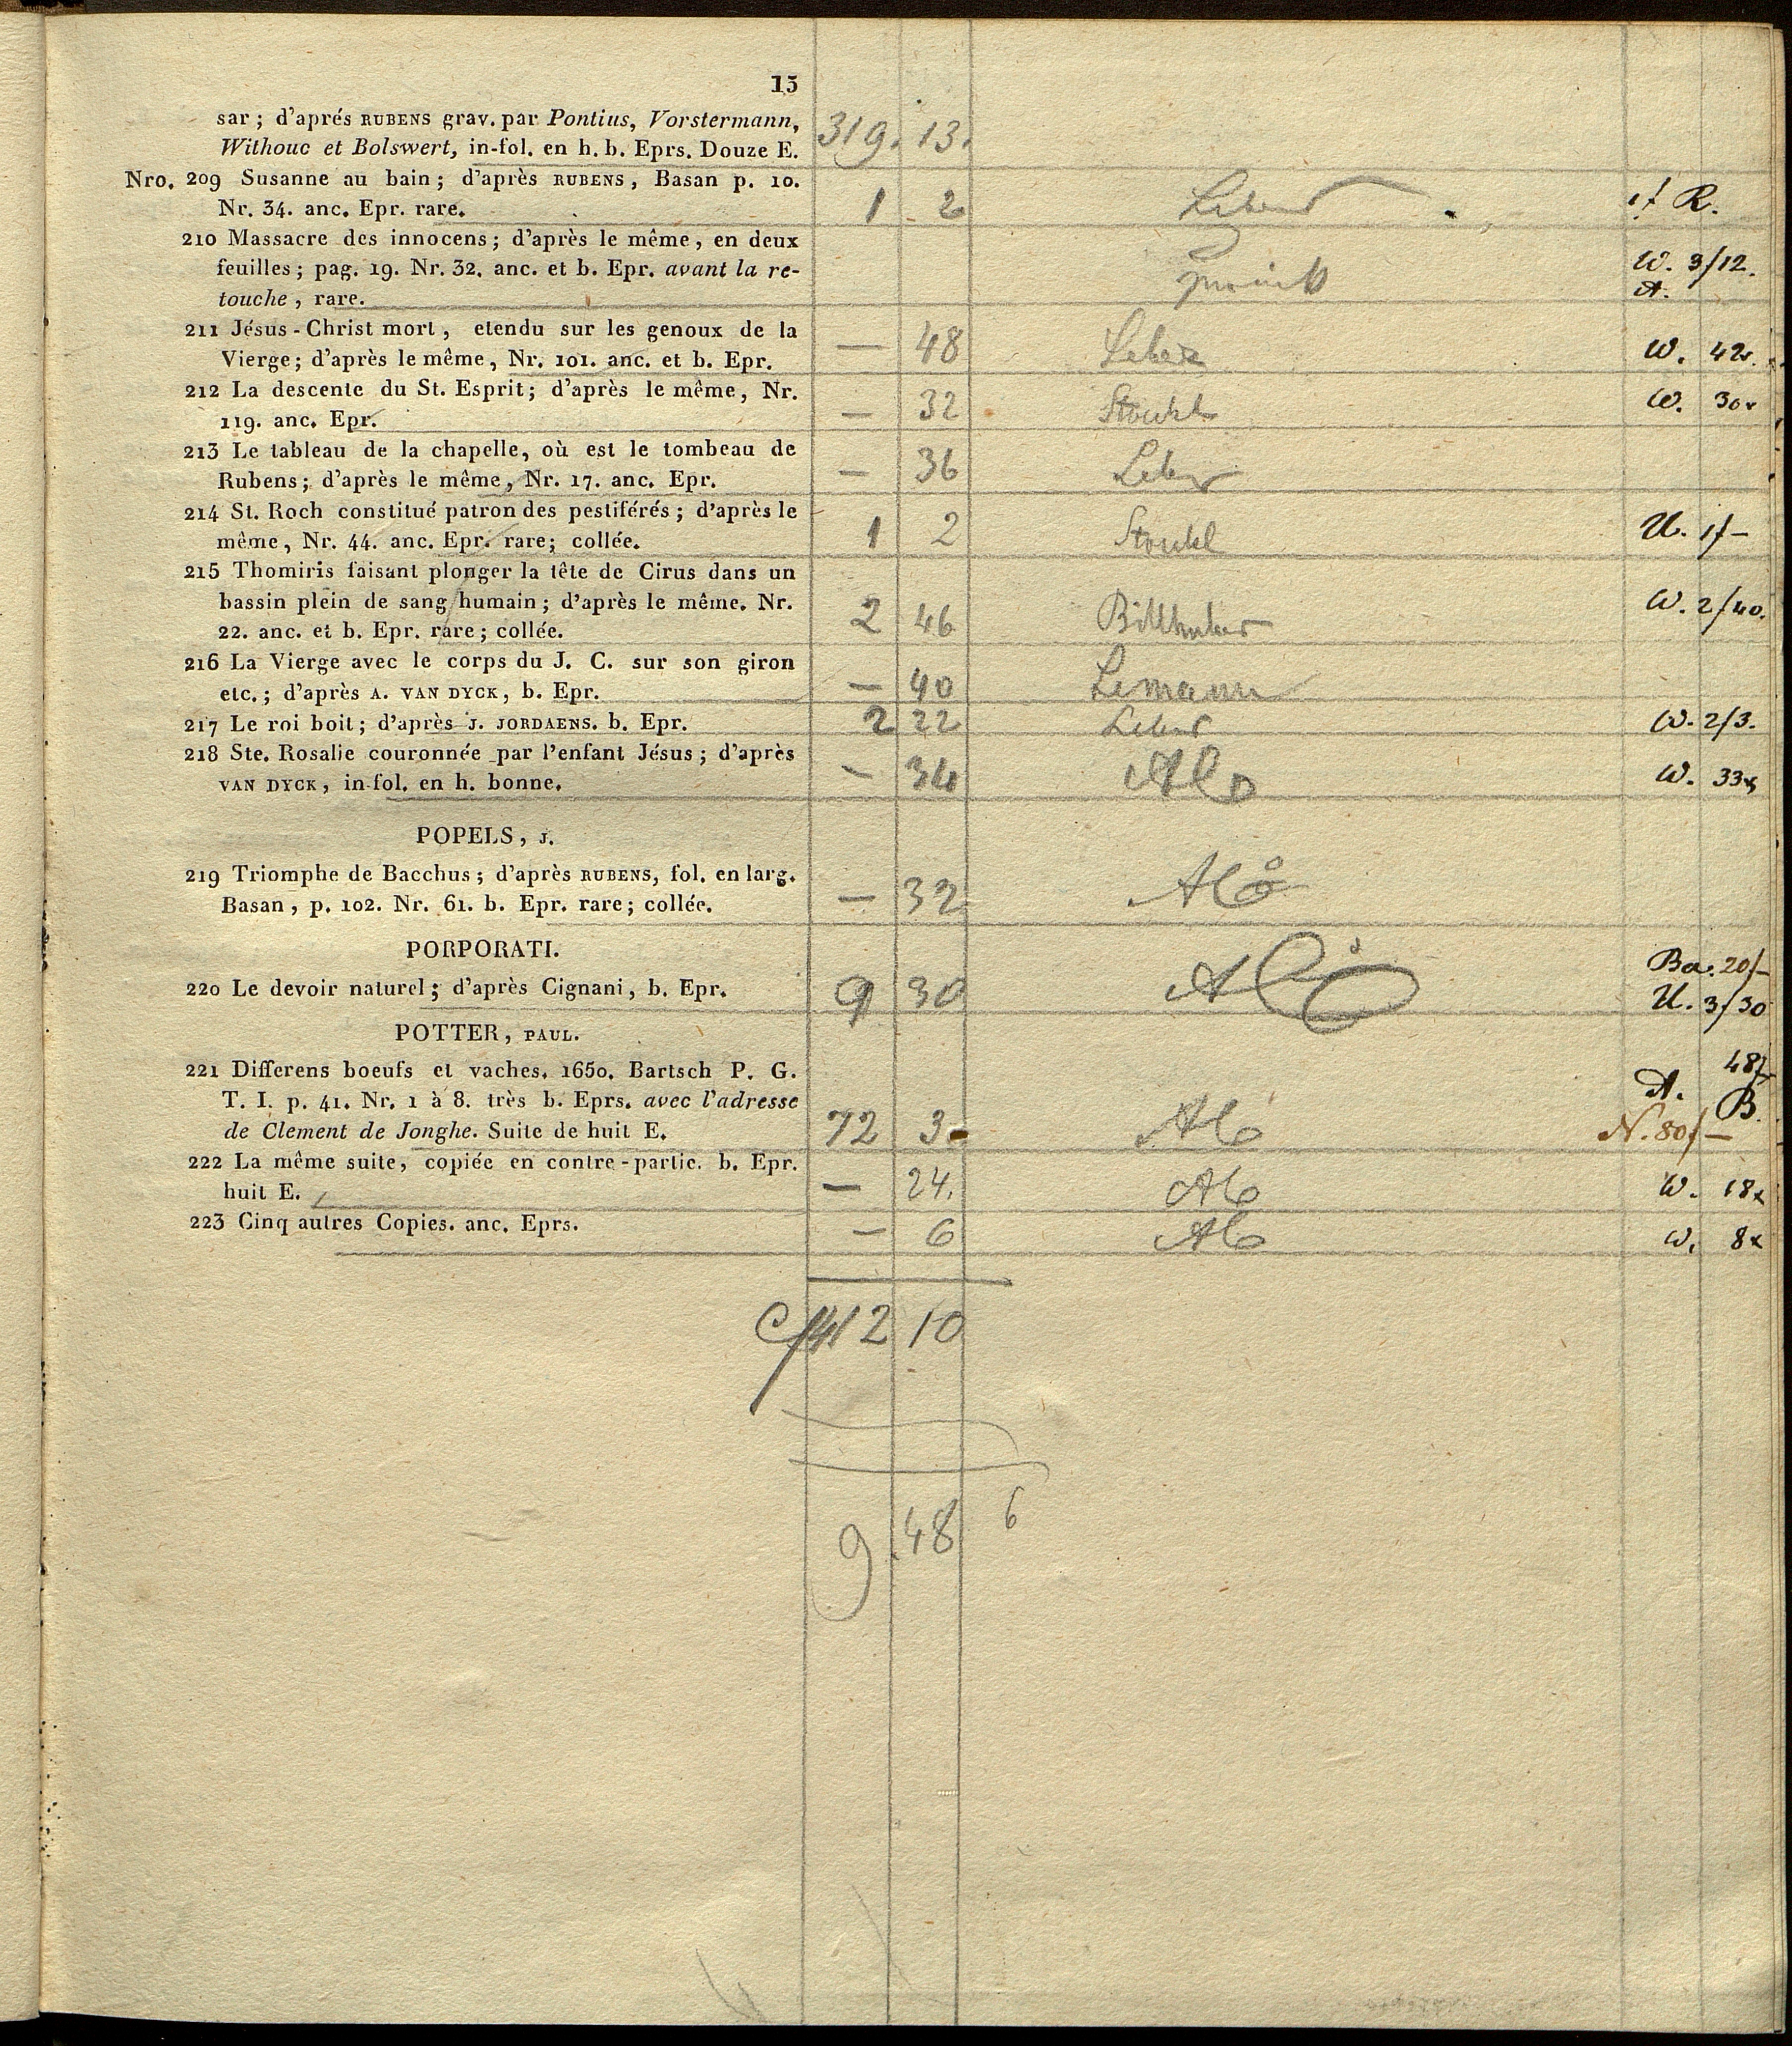 15
sar; d'aprés RUBENS grav. par Pontius, Vorstermann, 319. 13.
Withouc et Bolswert, in-fol. en h. b. Eprs. Douze E.
Nro. 209 Susanne au bain; d'après RUBENS, Basan p. 10.
Nr. 34. anc. Epr. rare. 1 2 R.
210 Massacre des innocens; d'après le même, en deux
feuilles; pag. 19. Nr. 32. anc. et b. Epr. avant la re- W. 3/12.
touche, rare. A.
211 Jésus-Christ mort, etendu sur les genoux de la
Vierge; d'après le même, Nr. 101. anc. et b. Epr. — 48 W. 42
212 La descente du St. Esprit; d'après le même, Nr.
119. anc. Epr. — 32 Stouhl W. 30
213 Le tableau de la chapelle, où est le tombeau de
Rubens; d'après le même, Nr. 17. anc. Epr. — 36
214 St. Roch constitué patron des pestiférés; d'après le
même, Nr. 44. anc. Epr. rare; collée. 1 2 Stouhl U. 1f—
215 Thomiris faisant plonger la tête de Cirus dans un
bassin plein de sang humain; d'après le même. Nr. W. 2/40.
22. anc. et b. Epr. rare; collée. 2 46 Billhuber
216 La Vierge avec le corps du J. C. sur son giron
etc.; d'après A. VAN DYCK, b. Epr. — 40 Lemann
217 Le roi boit; d'après J. JORDAENS. b. Epr. 2 22 W. 2/3.
218 Ste. Rosalie couronnée par l'enfant Jésus; d'après
VAN DYCK, in-fol. en h. bonne. — 34 W. 33
POPELS, J.
219 Triomphe de Bacchus; d'après RUBENS, fol. en larg.
Basan, p. 102. Nr. 61. b. Epr. rare; collée. — 32
PORPORATI.
Ba. 20/—
220 Le devoir naturel; d'après Cignani, b. Epr. 9 30 U. 3/30
POTTER, PAUL.
221 Differens boeufs et vaches. 1650. Bartsch P. G. 48
T. I. p. 41. Nr. 1 à 8. très b. Eprs. avec l'adresse A. B.
de Clement de Jonghe. Suite de huit E. 72 3 N. 80/—
222 La même suite, copiée en contre-partie. b. Epr.
huit E. — 24. W. 18
223 Cinq autres Copies. anc. Eprs. — 6 W. 8
412 10
9 48 6